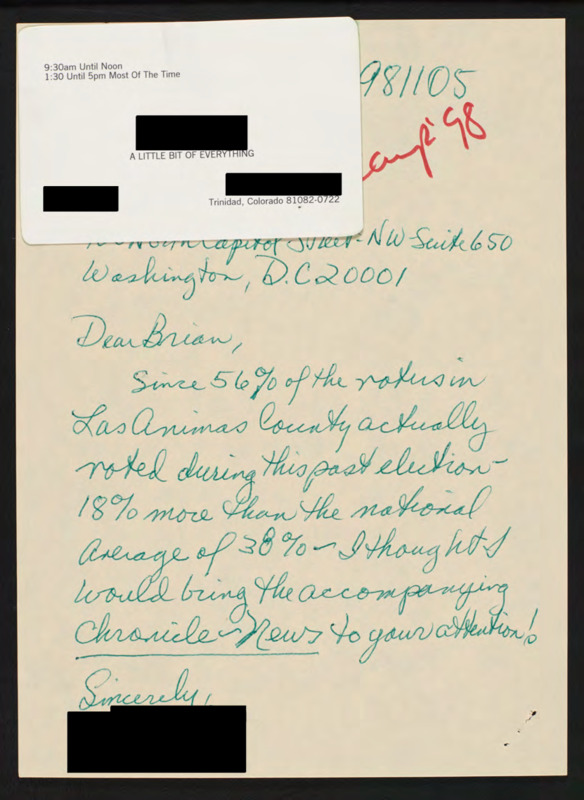 9:30am Until Noon
1:30 Until 5pm Most Of The Time
A LITTLE BIT OF EVERYTHING
Trinidad, Colorado 81082-0722
981105
'98
North Capitol Street-NW-Suite 650
Washington, D.C 20001
Dear Brian,
Since 56% of the voters in
Las Animas County actually
voted during this past election-
18% more than the national
average of 38% - I thought I
would bring the accompanying
Chronicle-News to your attention!
Sincerely,